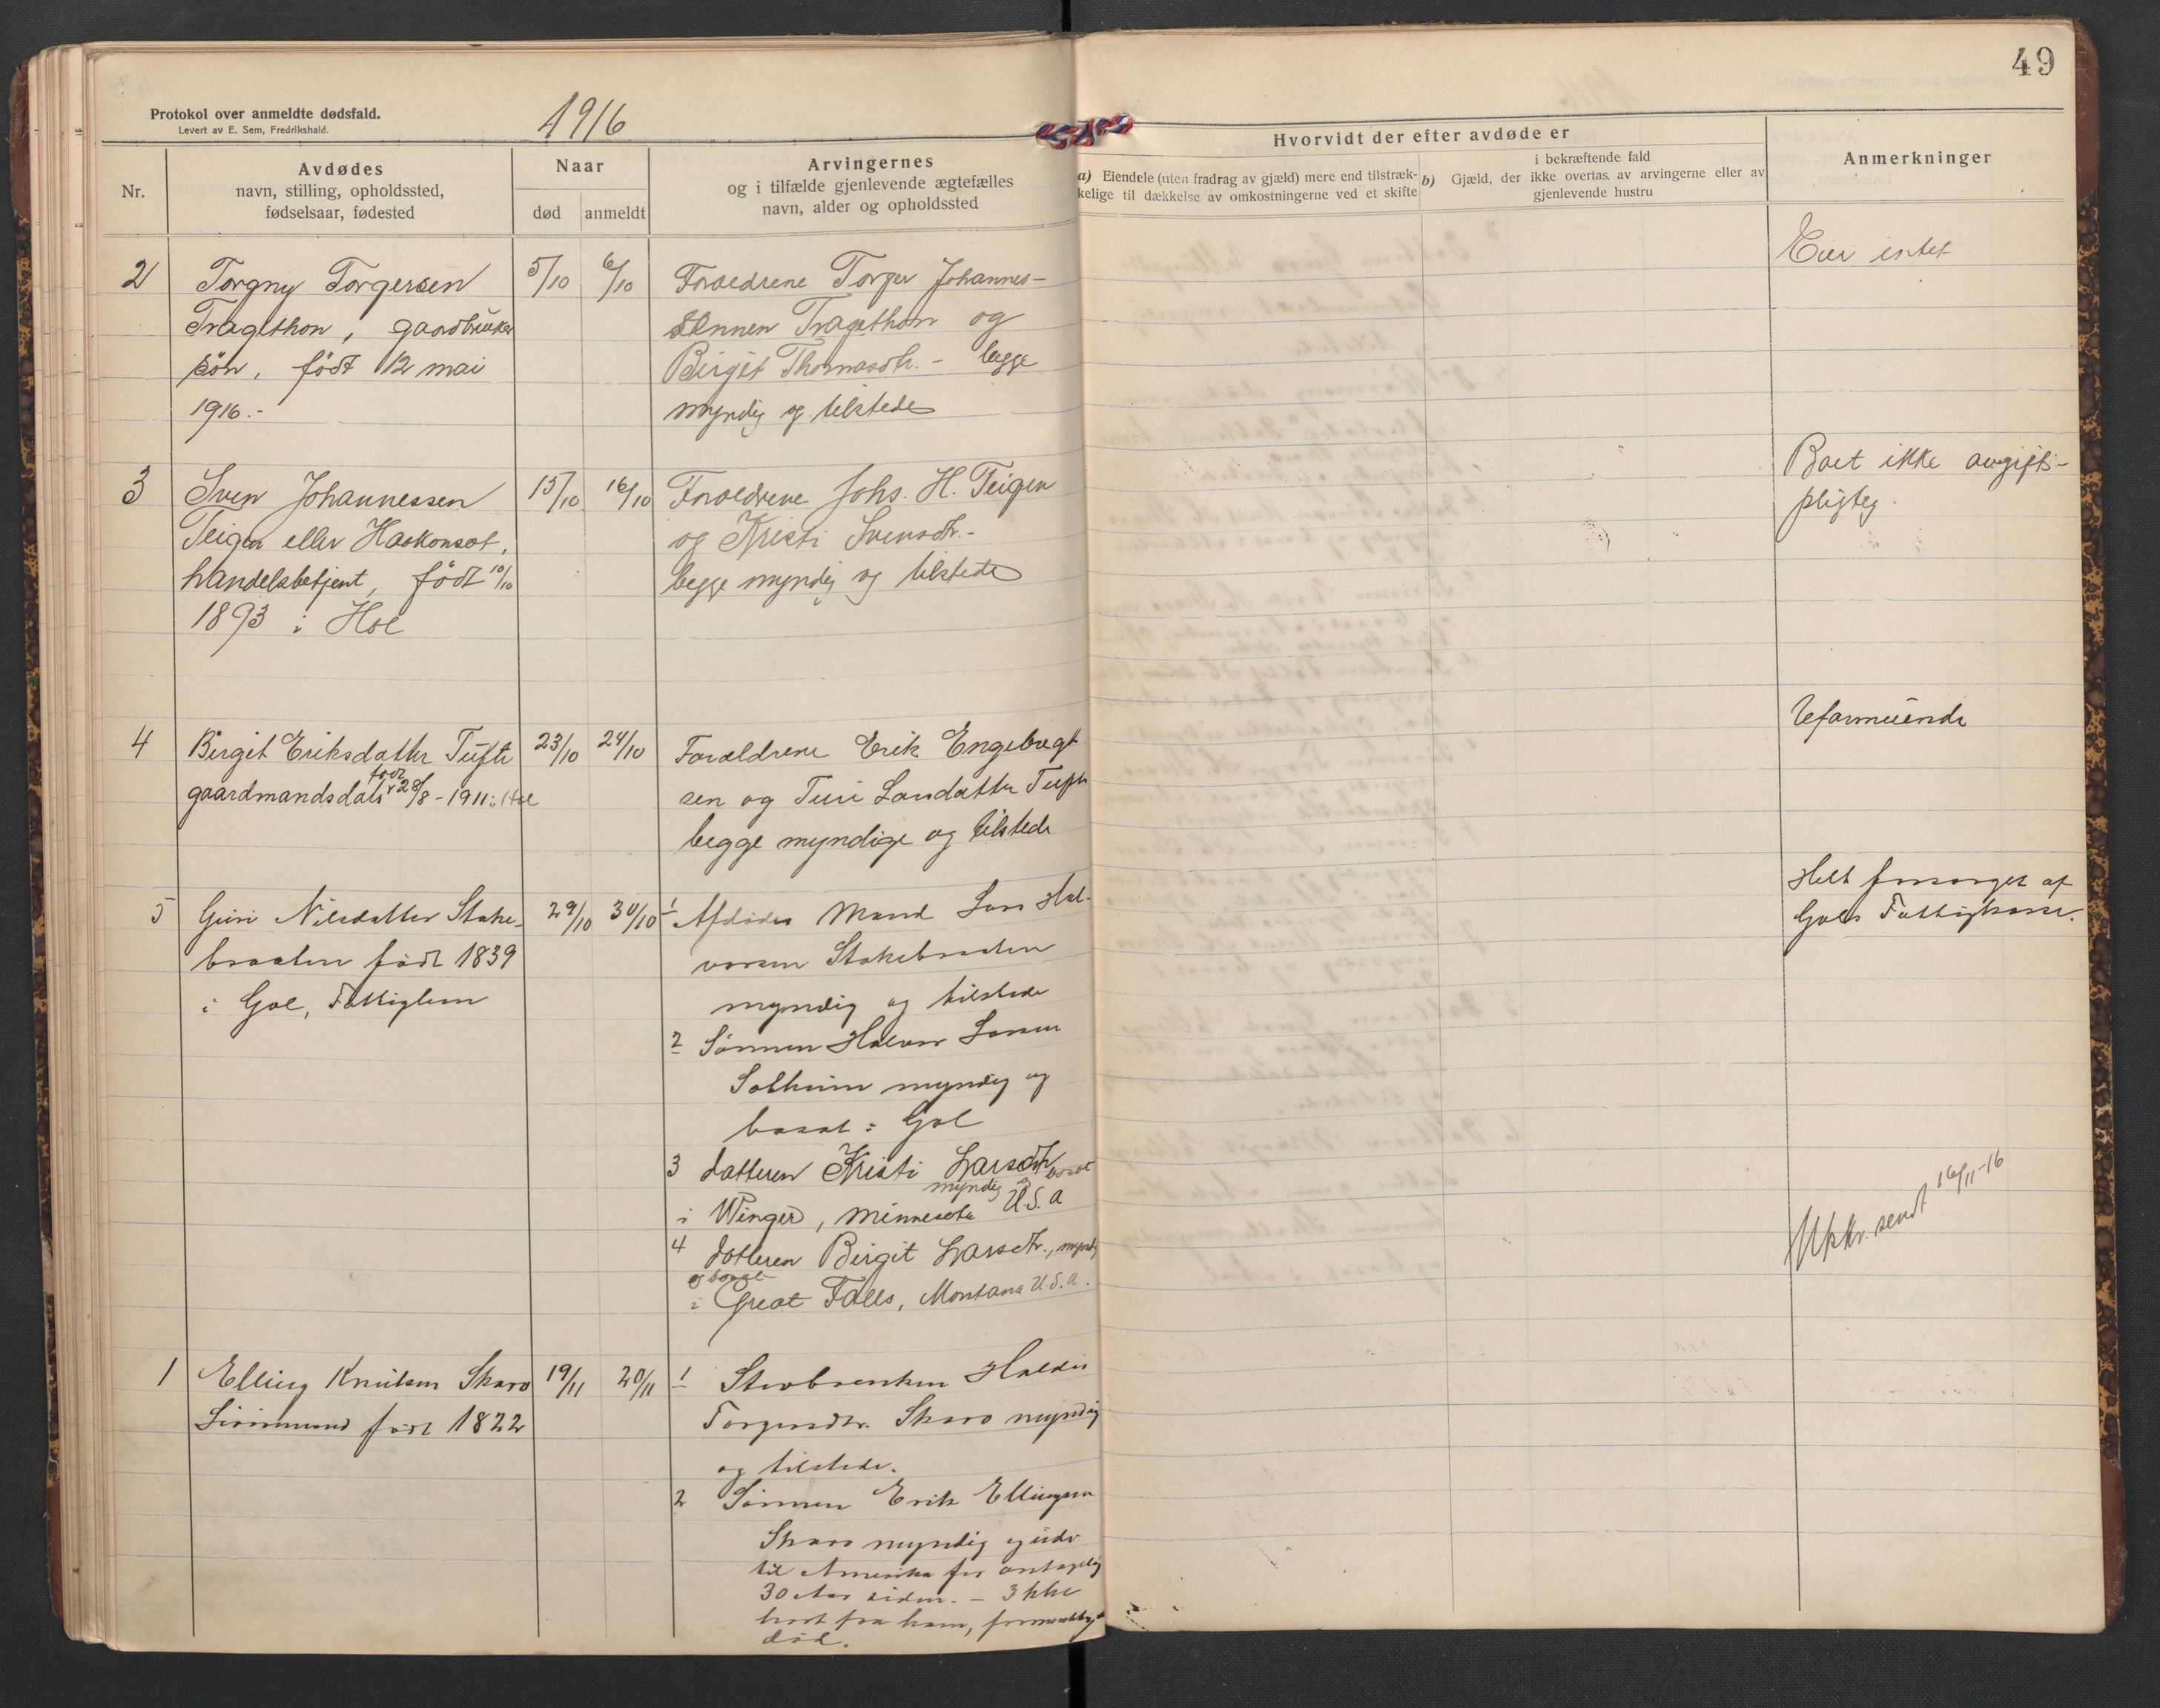 49
Protokol over anmeldte dødsfald.
Levert av E. Sem, Fredrikshald.
1916
Nr.
Avdødes
navn, stilling, opholdssted,
fødselsaar, fødested
Naar
død
anmeldt
Arvingernes
og i tilfælde gjenlevende ægtefælles
navn, alder og opholdssted
Hvorvidt der efter avdøde er
a) Eiendele (uten fradrag av gjæld) mere end tilstræk-
kelige til dækkelse av omkostningerne ved et skifte
i bekræftende fald
b) Gjæld, der ikke overtas av arvingerne eller av
gjenlevende hustru
Anmerkninger
2
Torgny Torgersen
Tragethon, gaardbruker
søn, født 12 mai
1916.-
5/10
6/10
Foreldrene Torger Johannes-
Tragethon og
Birgit Thomasdtr. - begge
myndig og tilstede
Eier intet
3
Sven Johannessen
Teigen eller Haakonset,
handelsbetjent, født 10/10
1893 i Hol
15/10
16/10
Foreldrene Johs. H. Teigen
og Kristi Svensdtr.-
begge myndig og tilstede
Boet ikke avgifts-
pligtig.
4
Birgit Eriksdatter Tufte
gaardmandsdatr født 28/8-1911 i Hol
23/10
24/10
Forældrene Erik Engebregt
sen og Turi Larsdatter Tufte
begge myndige og tilstede
Uformuende
5
Guri Nilsdatter Stake-
braaten født 1839
i Gol, Fattiglem
29/10
30/10
1 Afdødes Mand Lars Hal-
vorsen Stakebraaten
myndig og tilstede
2 Sønnen Halvor Larsen
Solheim myndig og
bosat i Gol
3 datteren Kristi Larsdtr
myndig og bosat
i Winger, Minnesota U.S.A
4 datteren Birgit Larsdtr., myndig
og bosat
i Great Falls, Montana U.S.A.
Helt forsørget af
Gols Fattigkasse.
sendt 16/11-16
1
Elling Knutsen Skaro
født 1822
19/11
20/11
1 Haldis
Torgersdtr. Skaro myndig
og tilstede.
2 Sønnen Erik Ellingsen
Skaro myndig og udv
til Amerika for antagelig
30 Aar siden. - Ikke
hørt fra ham, formentlig
død.